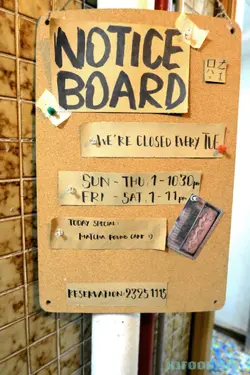 NOTICE
BOARD
WE'RE CLOSED EVERY TUE
SUN - THU, 1 - 10:30pm
FRI - SAT, 1 - 11pm
TODAY SPECIAL:
MATCHA POUND CAKE :)
RESERVATION: 9395 1115